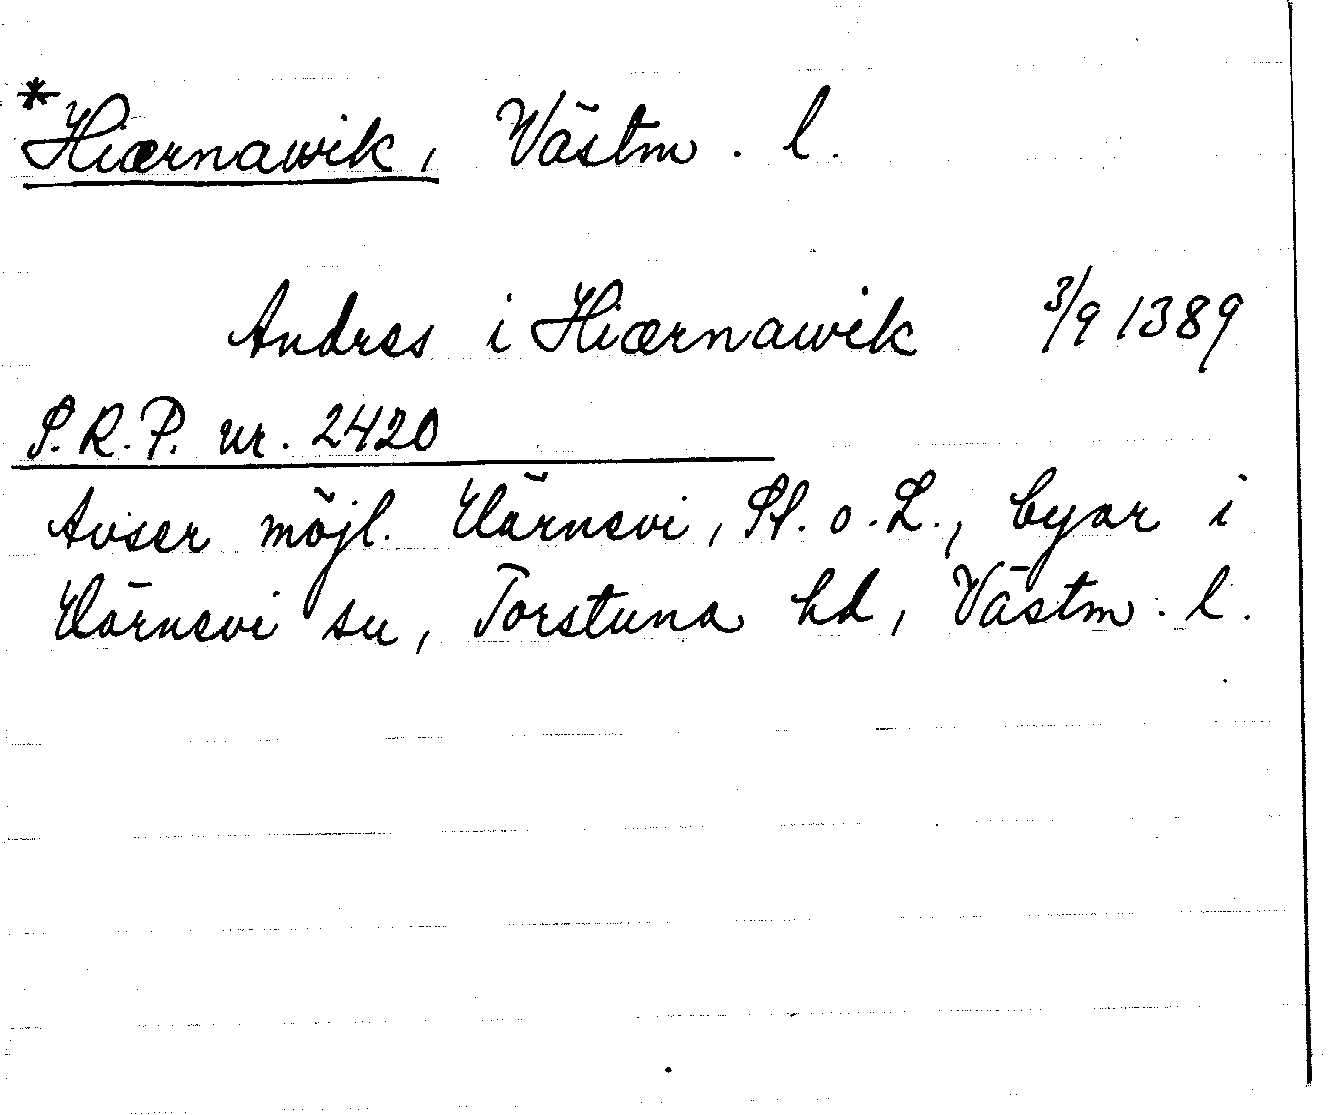 *Hiærnawik, Västm. l.
Andres i Hiærnawik 3/9 1389
S.R.P. nr. 2420
Avser möjl. Härnevi, St. o. L., byar i
Härnevi sn, Torstuna hd, Västm. l.